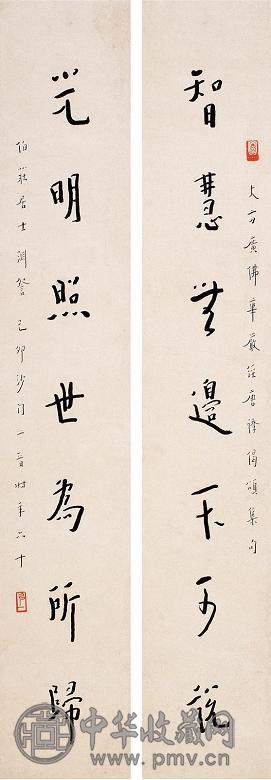 大方廣佛華嚴經唐譯偈頌集句
智慧無邊不可說
光明照世為所歸
居士淵詧 己卯沙門一音時年六十
中华收藏网
www.pmv.cn